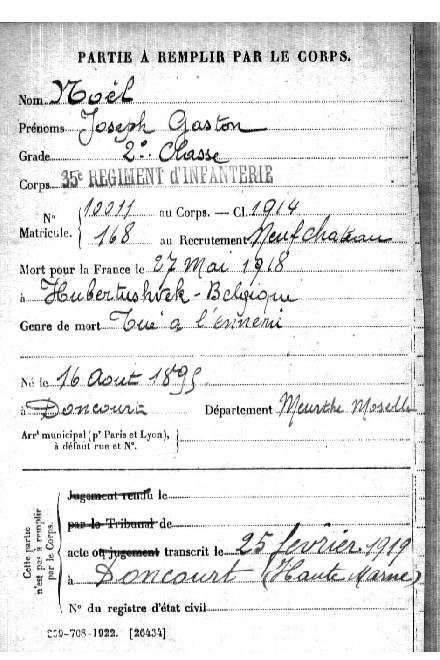 PARTIE À REMPLIR PAR LE CORPS.
Nom Noël
Prénoms Joseph Gaston
Grade 2e Classe
Corps 35e REGIMENT d'INFANTERIE
N° 10011 au Corps. — Cl. 1914
Matricule. 168 au Recrutement Neufchateau
Mort pour la France le 27 Mai 1918
à Hubertushoek - Belgique
Genre de mort Tué à l'ennemi
Né le 16 Aout 1895
à Doncourt Département Meurthe Moselle
Arrt municipal (pr Paris et Lyon),
à défaut rue et N°.
Cette partie
n'est pas à remplir
par le Corps.
Jugement rendu le
par le Tribunal de
acte ou jugement transcrit le 25 fevrier 1919
à Doncourt (Haute Marne)
N° du registre d'état civil
-708-1922. [26434]